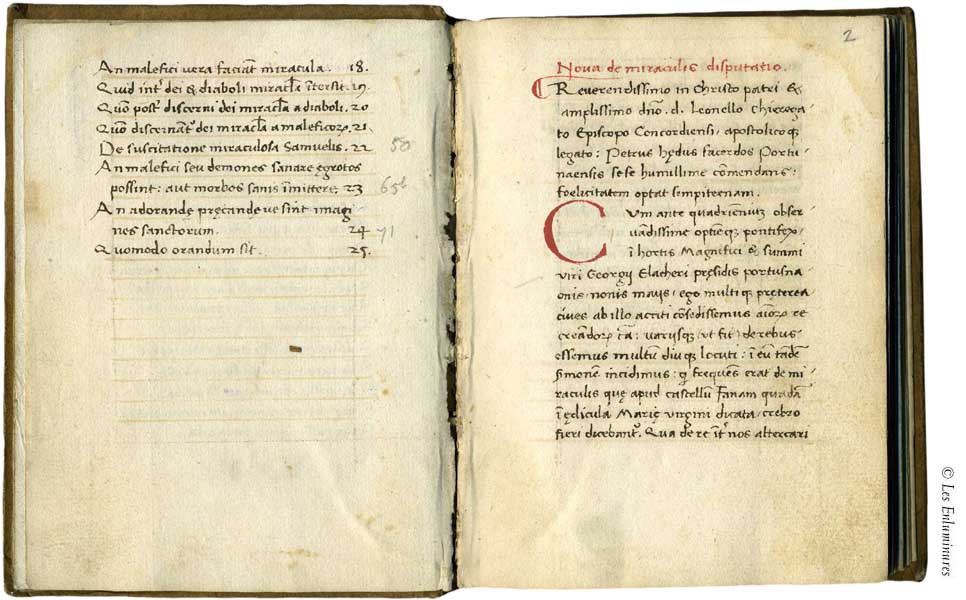 An malefici vera faciāt miracula. 18.
Quid intʳ dei & diaboli miracl̄a ītersit. 19.
Quō postˢ discerni dei miracl̄a a diaboli. 20
Quō discernātʳ dei miracl̄a a maleficoꝝ. 21.
De suscitatione miraculosa Samuelis. 22 50
An malefici seu demones sanare ęgrotos
possint: aut morbos sanis īmittere. 23 65b
An adorandę pręcandę ve sint imagi
nes sanctorum. 24 71
Quomodo orandum sit. 25.
2
Nova de miraculis disputatio.
Reverendissimo in Christo patri &
amplissimo dn̄o. d. Leonello Chierega
to Episcopo Concordiensi, apostolico qꝫ
legato: Petrus hędus sacerdos Portu
naensis sese humillime cōmendans:
foelicitatem optat sempiternam.
Cum ante quadrienniū obser
vādissime optimeqꝫ pontifex
ī hortis Magnifici & summi
viri Georgii Elacheri pręsidis portusna
onis nonis maiis, ego multi qꝫ pręterea
cives ab illo acciti cōsedissemus aīoꝝ re
creādoꝝ cā: variisqꝫ (ut fit) de rebus
essemus multū diu qꝫ locuti: ī eū tādē
sermonē incidimus: qͥ frequēs erat de mi
raculis quę apud castellū Fanam quadā
ī ędicula Marię virgini dicata, crebro
fieri dicebantʳ. Qua de re ītʳ nos altercari
© Les Enluminures